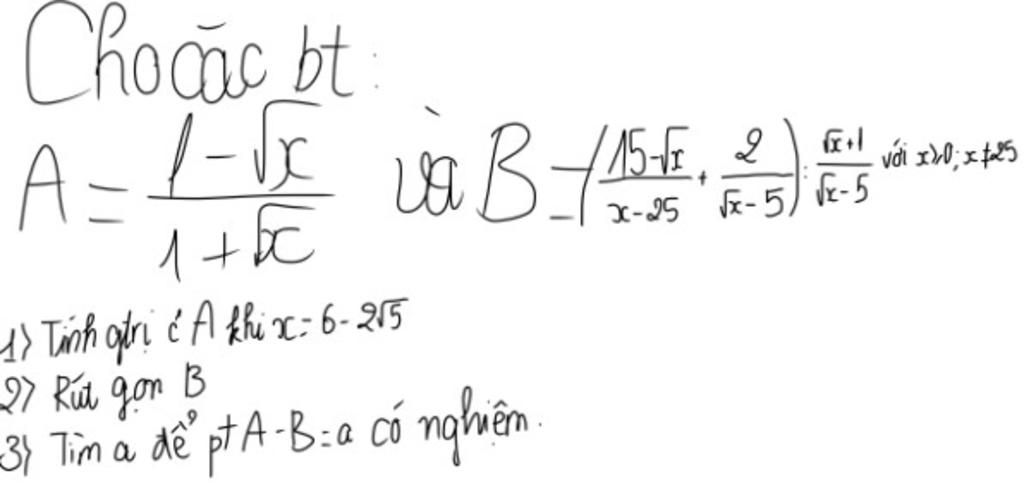 Cho các bt:
A = (1 - √x)/(1 + √x) và B = ((15 - √x)/(x - 25) + 2/(√x - 5)) : (√x + 1)/(√x - 5) với x ≥ 0; x ≠ 25
1) Tính gtrị c' A khi x = 6 - 2√5
2) Rút gọn B
3) Tìm a để pt A - B = a có nghiệm.